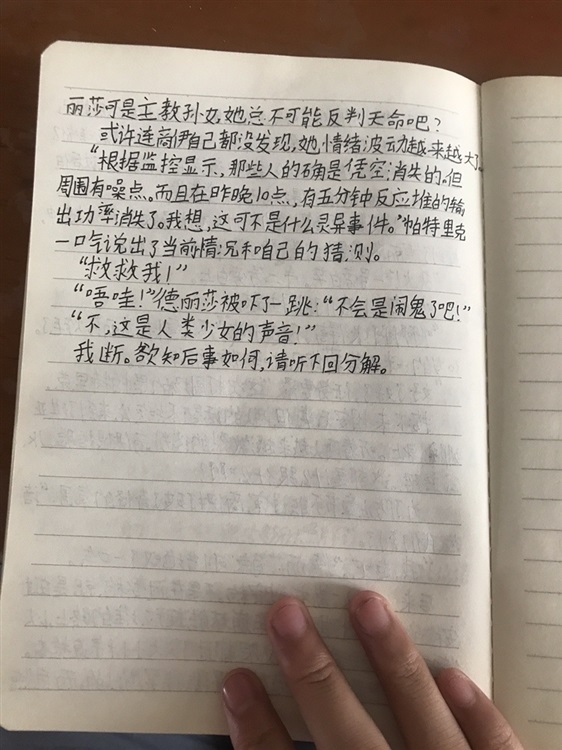 丽莎可是主教孙女,她总不可能反判天命吧?
或许连商伊自己都没发现,她情绪波动越来越大了。
"根据监控显示,那些人的确是凭空消失的。但
周围有噪点。而且在昨晚10点,有五分钟反应堆的输
出功率消失了。我想,这可不是什么灵异事件。"帕特里克
一口气说出了当前情况和自己的猜测。
"救救我!"
"唔哇!"德丽莎被吓了一跳:"不会是闹鬼了吧!"
"不,这是人类少女的声音!"
我断。欲知后事如何,请听下回分解。